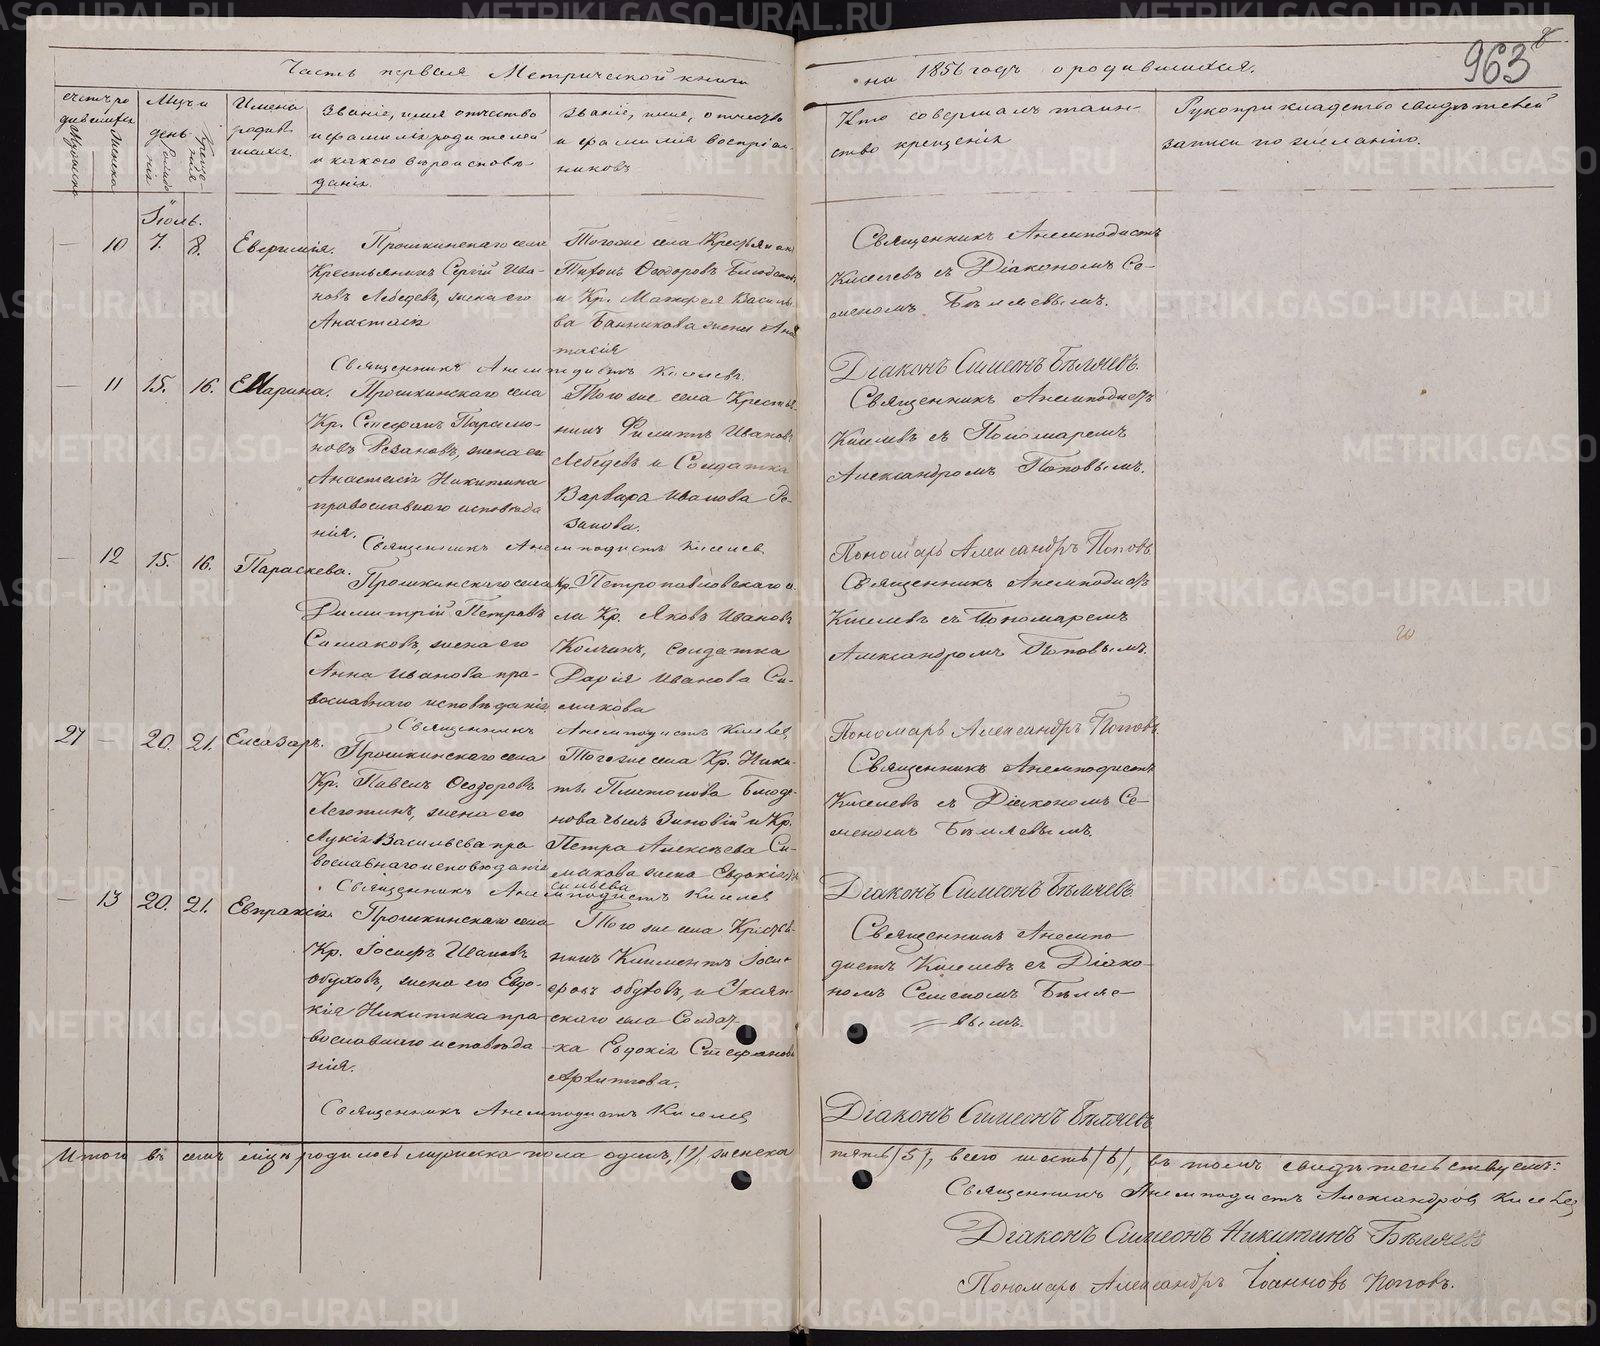 Часть первая Метрической книги на 1856 годъ о родившихся.
963
Счетъ родившихся
Мужеска
Женска
Мѣсяцъ и день
Рожденія
Крещенія
Имена родившихся.
Званіе, имя отчество
и фамилія родителей
и какого вѣроисповѣ-
данія.
Званіе, имя, отчество
и фамилія воспріем-
никовъ
Кто совершалъ таин-
ство крещенія
Рукоприкладство свидѣтелей
записи по желанію.
Іюль.
— 10 7. 8. Евфимія.
Прошкинскаго села
Крестьянинъ Сергій Ива-
новъ Лебедевъ, жена его
Анастасія
Тогоже села Крестьянин
Тихонъ Ѳеодоровъ
и Кр. Матфея Василь-
ва Банникова жена Ана
тасія
Священникъ Анемподистъ
Киселевъ съ Діакономъ Се-
меномъ Бѣляевымъ.
Священникъ Анемподистъ Киселевъ.
Діаконъ Симеонъ Бѣляевъ.
— 11 15. 16. Марина.
Прошкинскаго села
Кр. Стефанъ Парамо-
новъ Рѣзановъ, жена его
Анастасія Никитина
православнаго исповѣда
нія.
Того же села Крестья-
нинъ Филиппъ Ивановъ
Лебедевъ и Солдатка
Варвара Иванова Рѣ-
занова.
Священникъ Анемподистъ
Киселевъ съ Пономаремъ
Александромъ Поповымъ.
Священникъ Анемподистъ Киселев.
Пономарь Александръ Поповъ
— 12 15. 16. Параскева.
Прошкинскаго села Кр.
Димитрій Петровъ
Симаковъ, жена его
Анна Иванова пра-
вославнаго исповѣданія
Петропавловскаго се
ла Кр. Яковъ Ивановъ
Колчинъ, солдатка
Дарія Иванова Си-
макова
Священникъ Анемподистъ
Киселевъ съ Пономаремъ
Александромъ Поповымъ.
Священникъ Анемподистъ Киселев
Пономарь Александръ Поповъ.
27 — 20. 21. Елеазаръ.
Прошкинскаго села
Кр. Павелъ Ѳеодоровъ
Леготинъ, жена его
Лукія Васильева пра
вославнаго исповѣданія
Того же села Кр. Ники-
ты Платонова
нова сынъ Зиновій и Кр.
Петра Алексѣева Си-
макова жена Евдокія Ва
сильева
Священникъ Анемподистъ
Киселевъ съ Діакономъ Се-
меномъ Бѣляевымъ.
Священникъ Анемподистъ Киселев
Діаконъ Симеонъ Бѣляевъ.
— 13 20. 21. Евпраксія.
Прошкинскаго села
Кр. Іосифъ Ивановъ
Обуховъ, жена его Евдо-
кія Никитина пра
вославнаго исповѣда
нія.
Того же села Крестья-
нинъ Климентъ Іоси-
фовъ Обуховъ, и Уксян-
скаго села Солдат-
ка Евдокія Стефанова
Архипова.
Священникъ Анемпо
дистъ Киселевъ съ Діако-
номъ Семеномъ Бѣляе-
вымъ.
Священникъ Анемподистъ Киселев
Діаконъ Симеонъ Бѣляевъ
Итого въ семъ мѣсяцѣ родилось мужеска пола одинъ, /1/, женска пять /5/, всего шесть /6/, въ томъ свидѣтельствуемъ:
Священникъ Анемподистъ Александровъ Киселев
Діаконъ Симеонъ Никитинъ Бѣляевъ
Пономарь Александръ Іоанновъ Поповъ.
METRIKI.GASO-URAL.RU